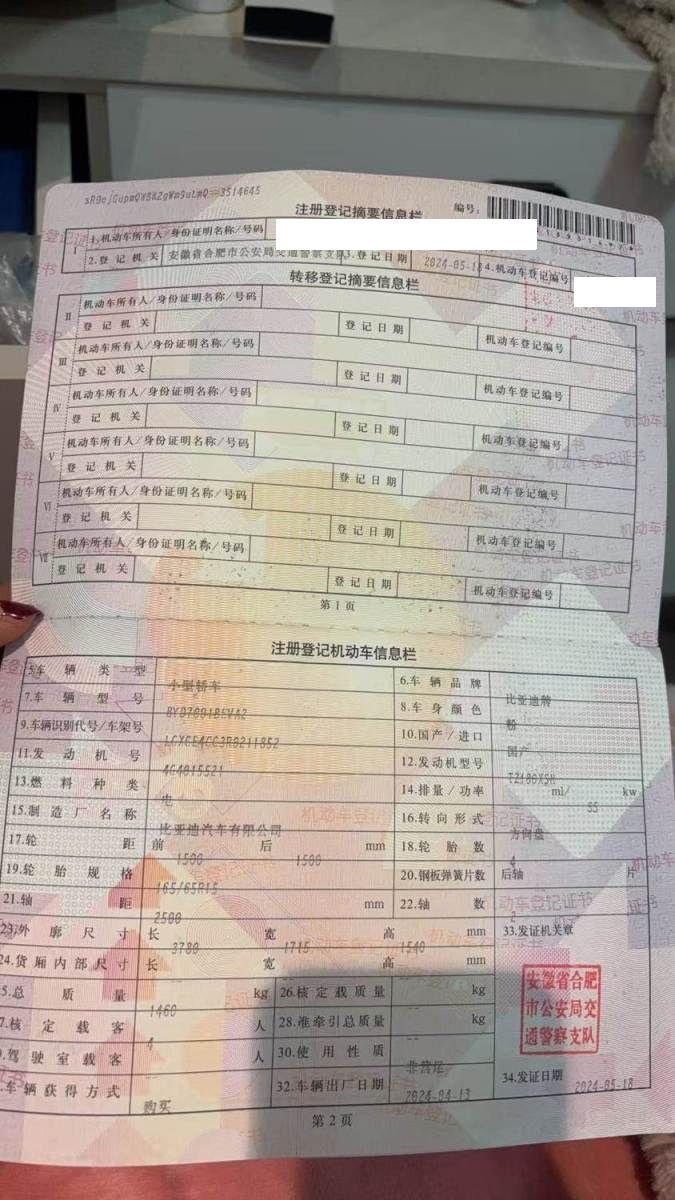 注册登记摘要信息栏 编号:
Ⅰ 1.机动车所有人/身份证明名称/号码
2.登记机关 安徽省合肥市公安局交通警察支队 3.登记日期 2024-05-18 4.机动车登记编号
转移登记摘要信息栏
Ⅱ 机动车所有人/身份证明名称/号码
登记机关 登记日期 机动车登记编号
Ⅲ 机动车所有人/身份证明名称/号码
登记机关 登记日期 机动车登记编号
Ⅳ 机动车所有人/身份证明名称/号码
登记机关 登记日期 机动车登记编号
Ⅴ 机动车所有人/身份证明名称/号码
登记机关 登记日期 机动车登记编号
Ⅵ 机动车所有人/身份证明名称/号码
登记机关 登记日期 机动车登记编号
Ⅶ 机动车所有人/身份证明名称/号码
登记机关 登记日期 机动车登记编号
第1页
注册登记机动车信息栏
5.车辆类型 小型轿车 6.车辆品牌 比亚迪牌
7.车辆型号 BYD7001BEVA2 8.车身颜色 粉
9.车辆识别代号/车架号 LGXCE4CC3R0211852 10.国产/进口 国产
11.发动机号 4G4015521 12.发动机型号 TZ180XSH
13.燃料种类 电 14.排量/功率 ml/ 55 kw
15.制造厂名称 比亚迪汽车有限公司 16.转向形式 方向盘
17.轮距 前 1500 后 1500 mm 18.轮胎数 4
19.轮胎规格 165/65R15 20.钢板弹簧片数 后轴 片
21.轴距 2500 mm 22.轴数 2
23.外廓尺寸 长 3780 宽 1715 高 1540 mm 33.发证机关章
24.货厢内部尺寸 长 宽 高 mm
5.总质量 1460 kg 26.核定载质量 -- kg
7.核定载客 4 人 28.准牵引总质量 -- kg
9.驾驶室载客 人 30.使用性质 非营运
车辆获得方式 购买 32.车辆出厂日期 2024-04-13 34.发证日期 2024-05-18
安徽省合肥
市公安局交
通警察支队
第2页